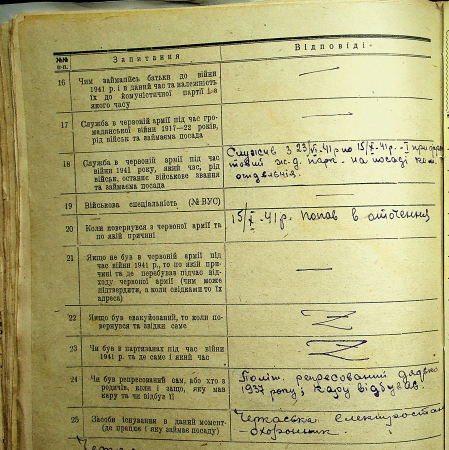 №№ п-п.
Запитання
Відповіді
16
Чим займались батьки до війни
1941 р. і в даний час та належність
їх до комуністичної партії і-в
якого часу
—
17
Служба в червоній армії під час гро-
мадянської війни 1917—22 років,
рід військ та займаєма посада
—
18
Служба в червоній армії під час
війни 1941 року, який час, рід
військ, останнє військове звання
та займаєма посада
Служив з 23/VI-41 р по 15/X-41р.-
парк. на посаді
19
Військова спеціальність (№ ВУС)
—
20
Коли повернувся з червоної армії та
по якій причині
15/X-41р. Попав в оточення
21
Якщо не був в червоній армії під
час війни 1941 р., то по якій при-
чині та де перебував підчас від-
ходу червоної армії (чим може
підтвердити, а коли свідками то їх
адреса)
—
22
Якщо був евакуйований, то коли по-
вернувся та звідки саме
Z
23
Чи був в партизанах під час війни
1941 р. та де саме і який час
Z
24
Чи був репресований сам, або хто з
родичів, коли і защо, яку мав
кару та чи відбув її
Політ. репресований дядько
1937 року; кару відбував.
25
Засоби існування в даний момент
(де працює і яку займає посаду)
Черкаська електростан
-охоронник.